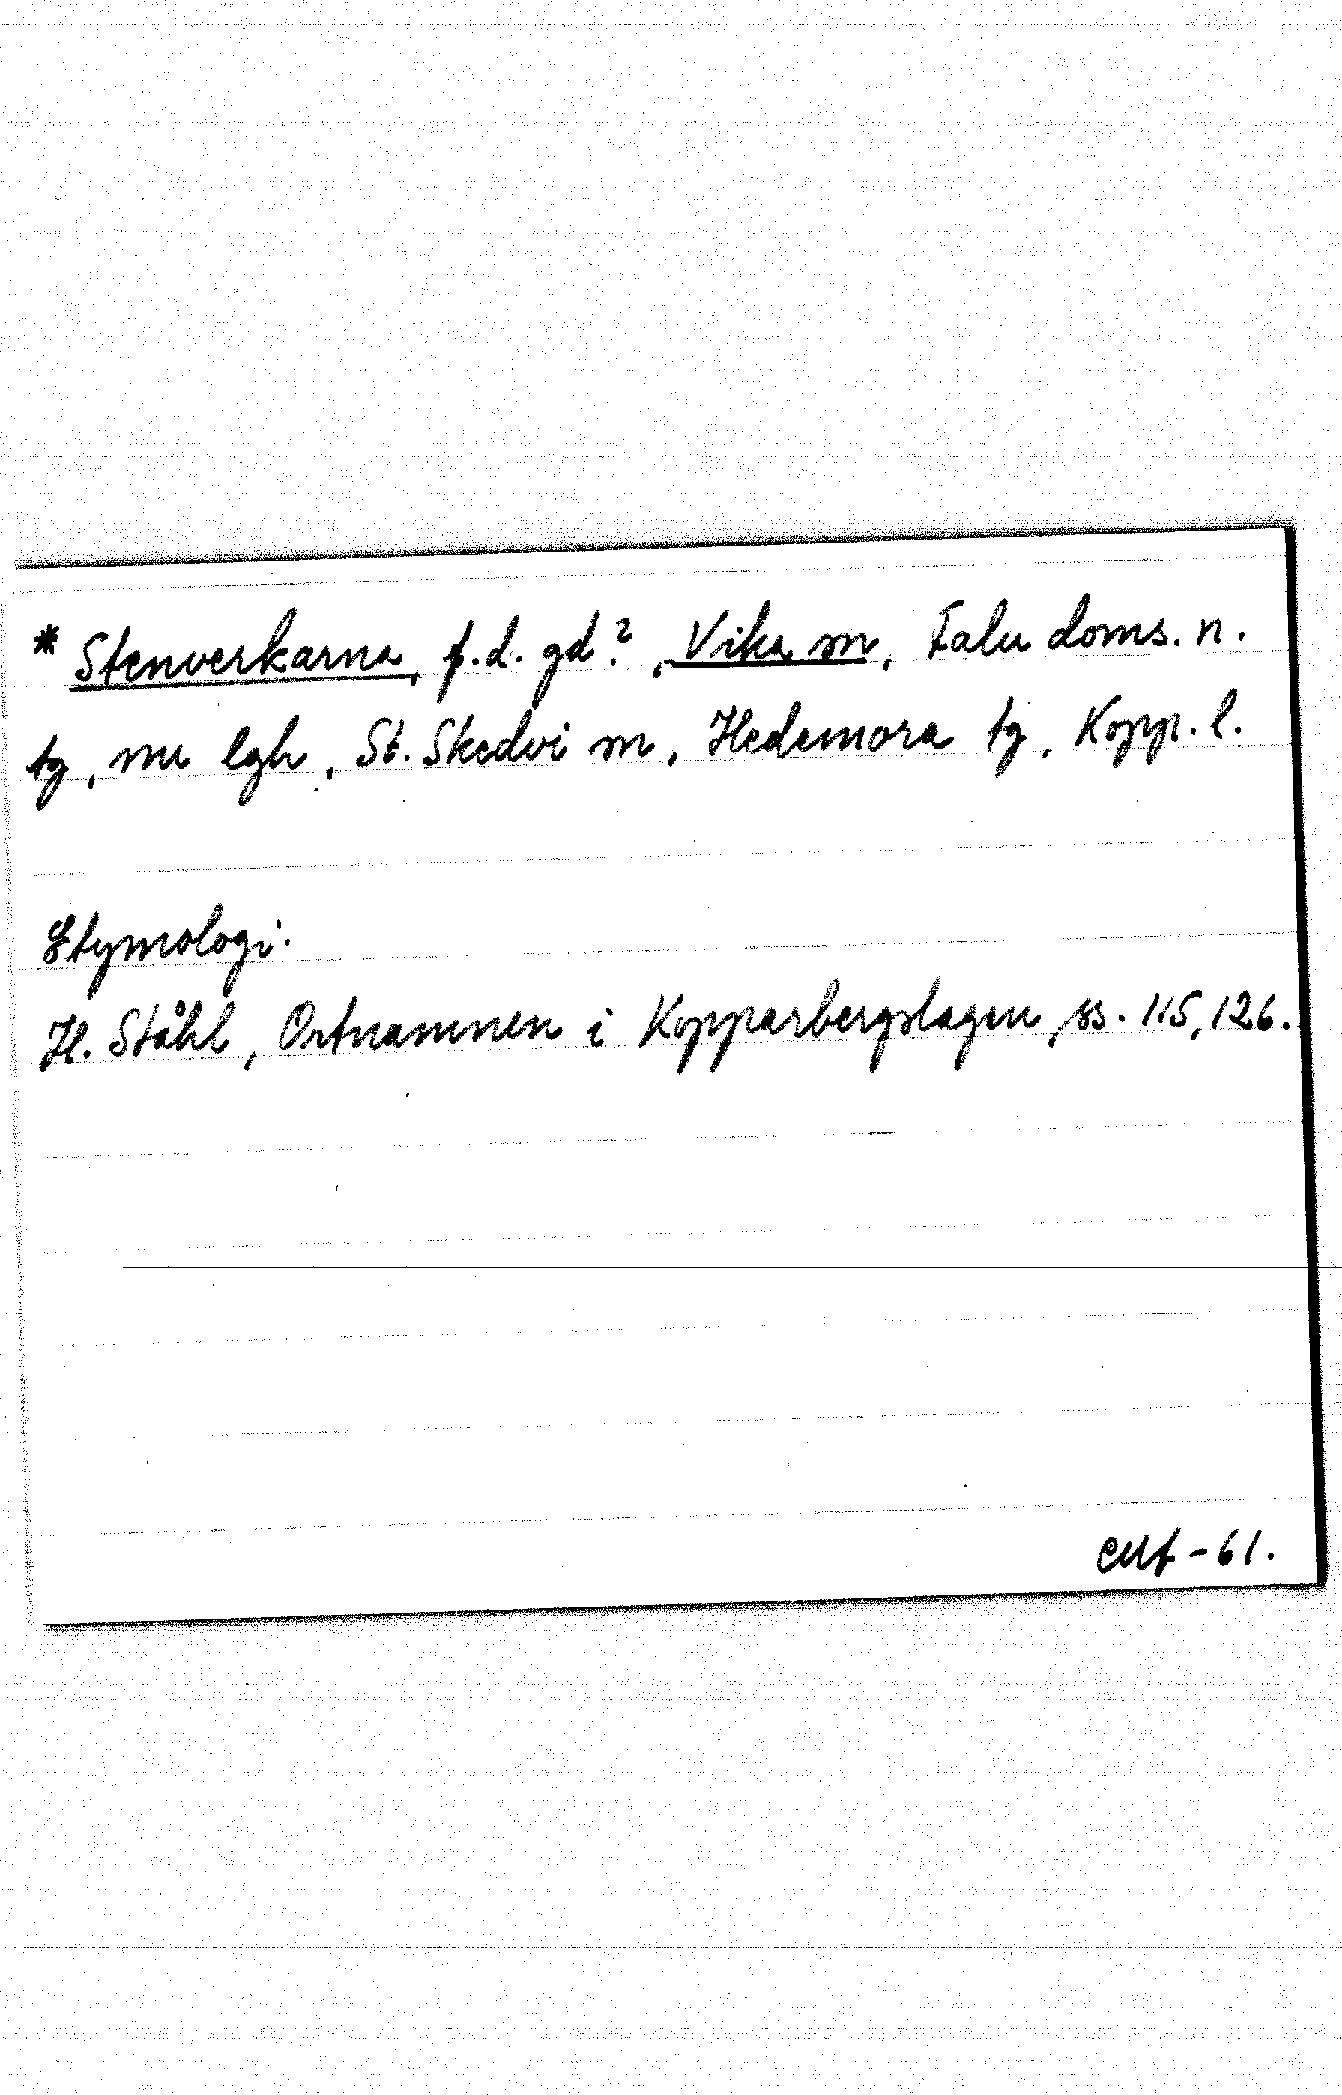 * Stenverkarna, f.d. gd?, Vika sn, Falu doms. n.
tg, nu lgh, St. Skedvi sn, Hedemora tg, Kopp. l.
Etymologi.
H. Ståhl, Ortnamnen i Kopparbergslagen, ss. 115, 126.
-61.